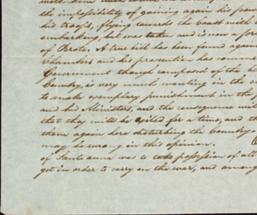 the impossibility of gaining again his power
his troops, flying towards the coast with
embarking, but was taken and is now a
of Perote. A true bill has been found against
chambers and his prosecution has
Government though composed of the
Country, is very much wanting in the
to make exemplary punishment in the
and his Ministers, and the consequence will
that they will be exiled for a time, and
them again here disturbing the Country
may be wrong in this opinion.
of Santa anna was to take possession of all
get in order to carry on the war, and among